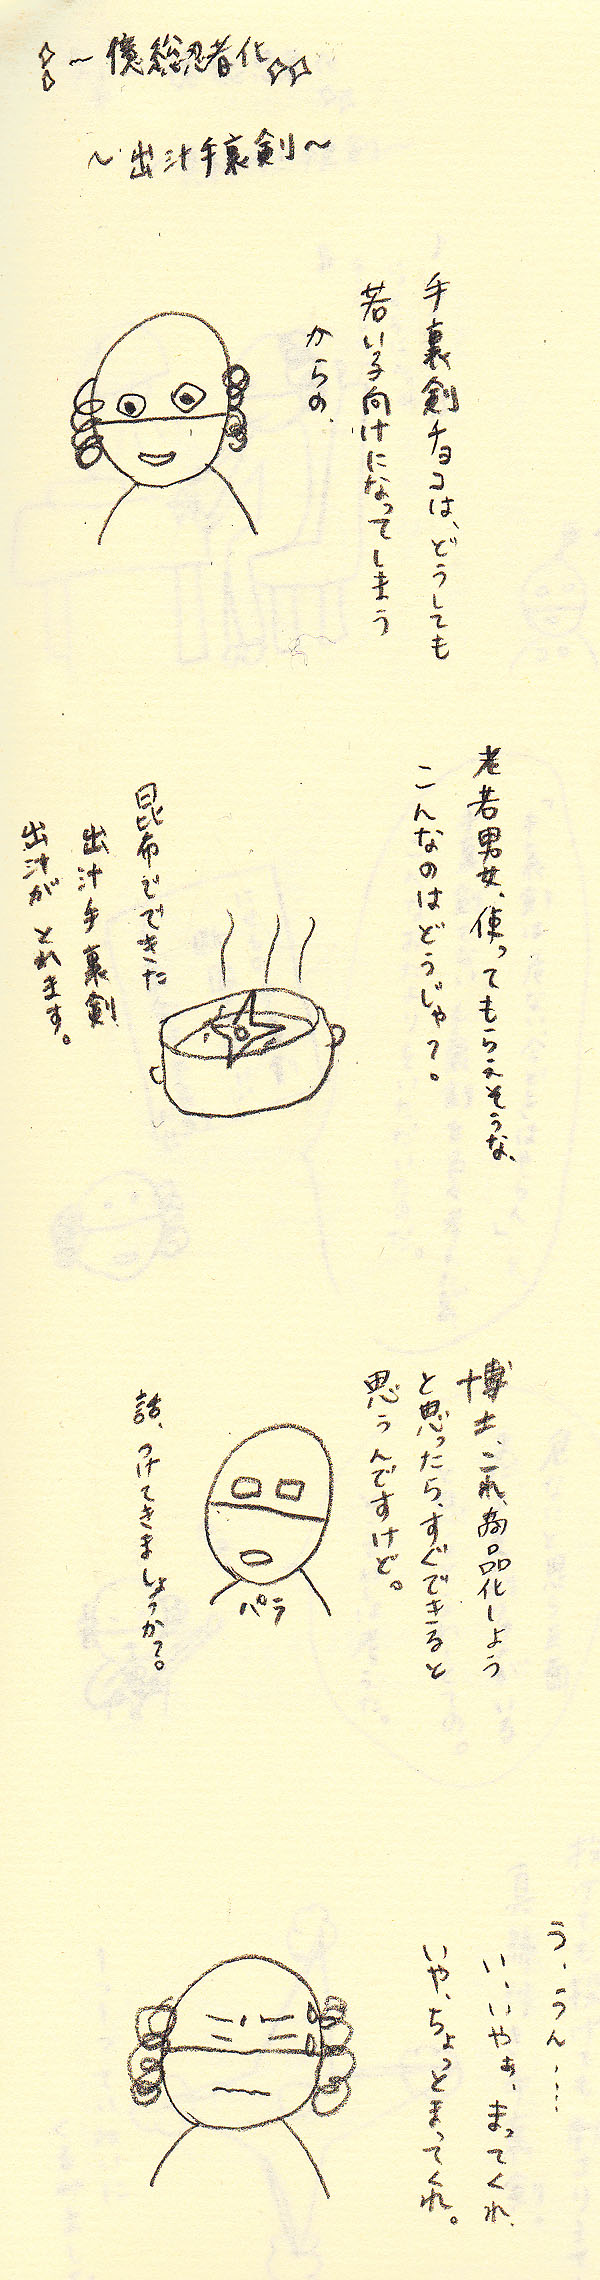 ～億総忍者化
～出汁手裏剣～
手裏剣チョコは、どうしても
若い子向けになってしまう
からの、
老若男女、使ってもらえそうな、
こんなのはどうじゃ？。
昆布でできた
出汁手裏剣
出汁がとれます。
博士、これ、商品化しよう
と思ったら、すぐできると
思うんですけど。
話、つけてきましょうか？。
パラ
う、うん、…
い、いやぁ、まってくれ、
いや、ちょっとまってくれ。